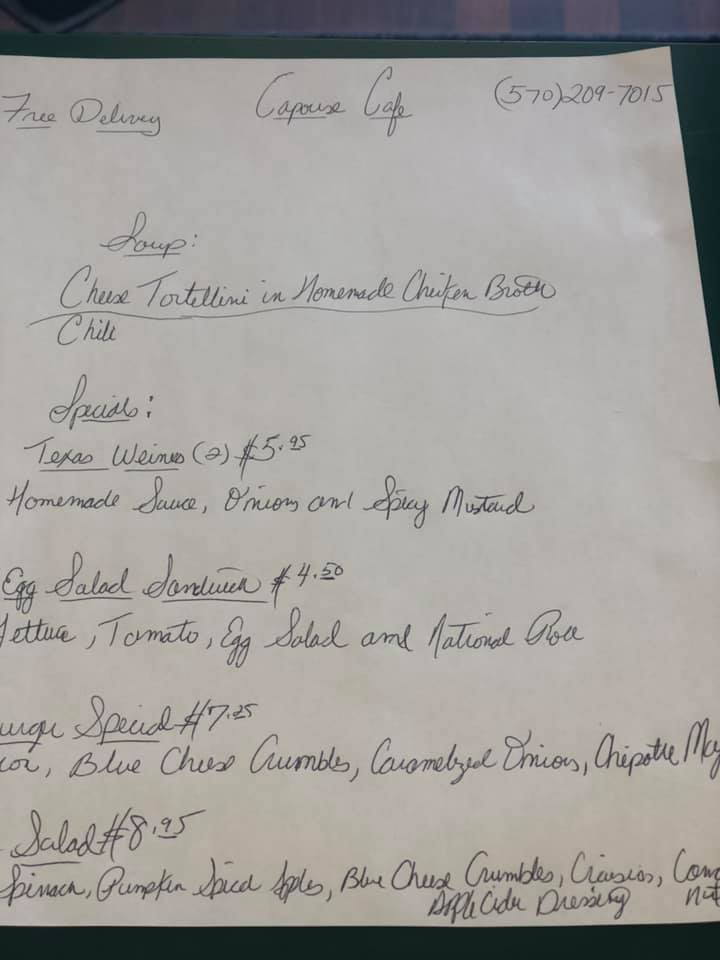 Free Delivery Capouse Cafe (570)209-7015
Soup:
Cheese Tortellini in Homemade Chicken Broth
Chili
Specials:
Texas Weiners (2) $5.95
Homemade Sauce, Onions and Spicy Mustard
Egg Salad Sandwich $4.50
Lettuce, Tomato, Egg Salad and National Roll
Special $7.25
Blue Cheese Crumbles, Caramelized Onions, Chipotle May
Salad $8.95
Spinach, Pumpkin Spiced Apples, Blue Cheese Crumbles, Craisins,
Apple Cider Dressing